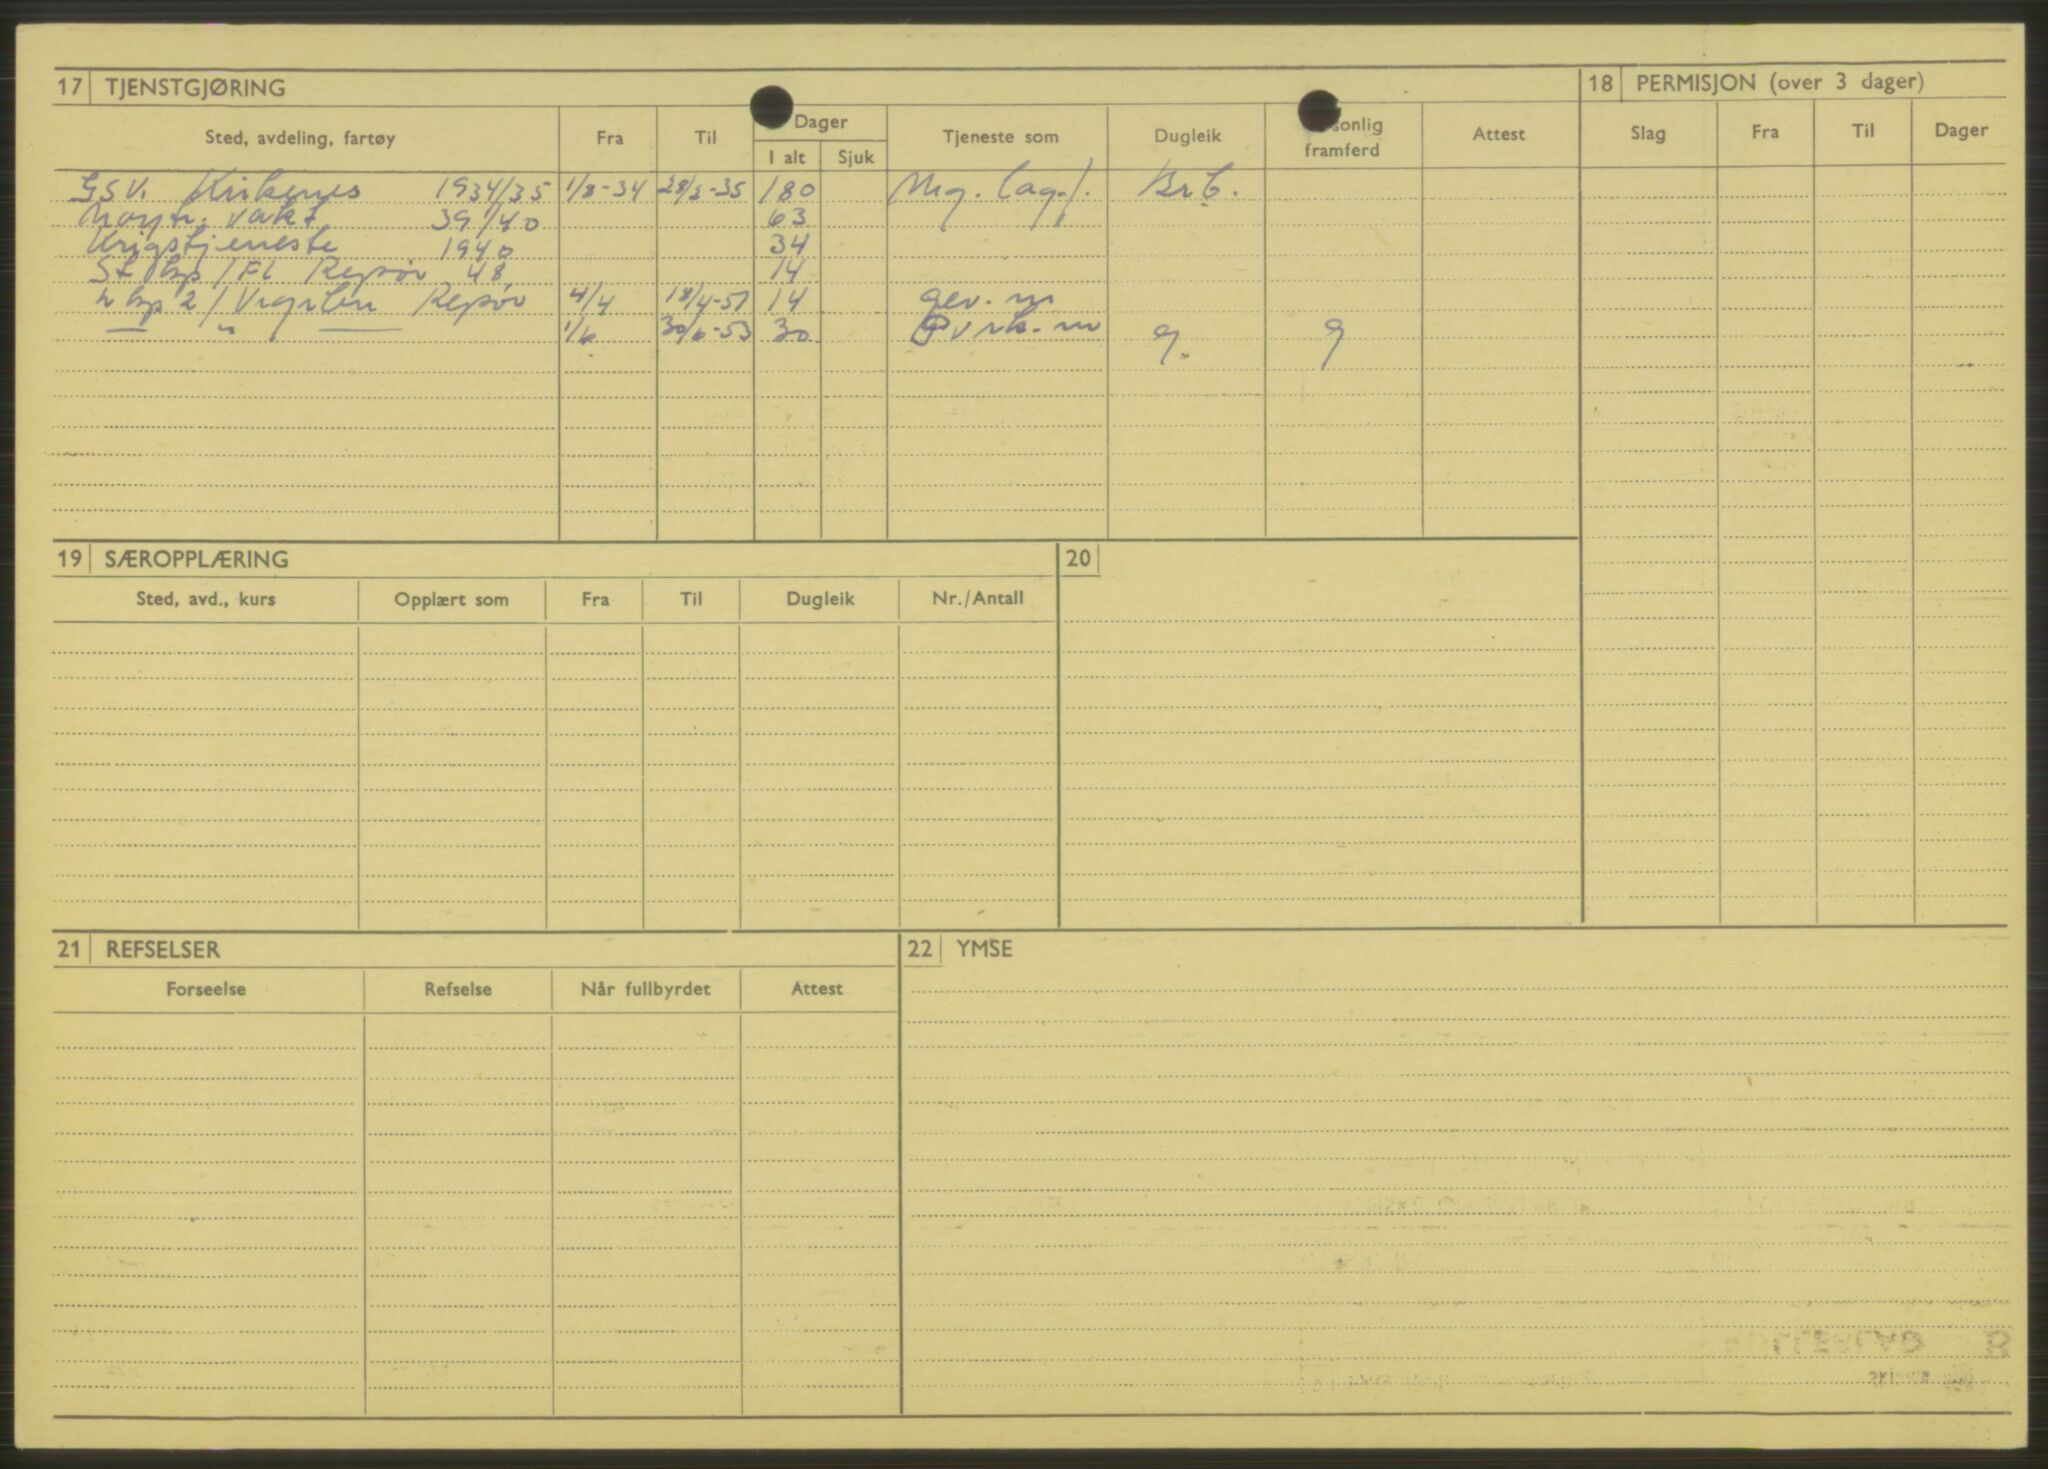 17 TJENSTGJØRING
Sted, avdeling, fartøy Fra Til Dager I alt Sjuk Tjeneste som Dugleik sonlig framferd Attest
GSV. Kirkenes 1934/35 1/8-34 28/2-35 180 Mg. lag.f. Br C.
Nøytr. vakt 39/40 63
Krigstjeneste 1940 34
St kp/Fl Repøv 48 14
L kp 2/Vognbn Repøv 4/4 18/4-51 14 gev. m
— " — 1/6 30/6-53 30 Pvrk. m g. g
18 PERMISJON (over 3 dager)
Slag Fra Til Dager
19 SÆROPPLÆRING
Sted, avd., kurs Opplært som Fra Til Dugleik Nr./Antall
20
21 REFSELSER
Forseelse Refselse Når fullbyrdet Attest
22 YMSE